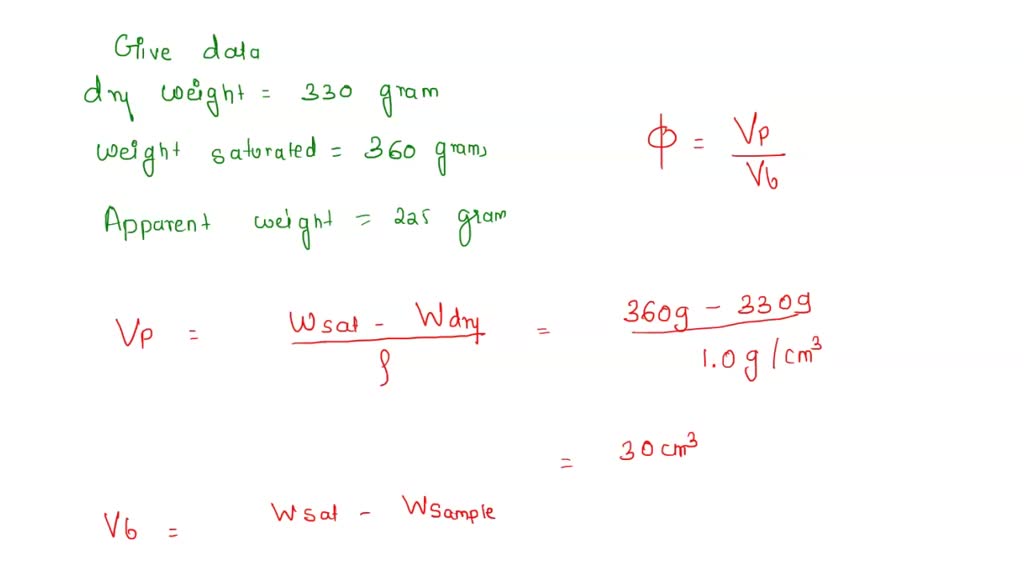 Give data
dry weight = 330 gram
weight saturated = 360 grams
Apparent weight = 225 gram
ϕ = Vp / Vb
Vp = Wsat - Wdry / ρ = 360g - 330g / 1.0 g/cm³
= 30 cm³
Vb = Wsat - Wsample